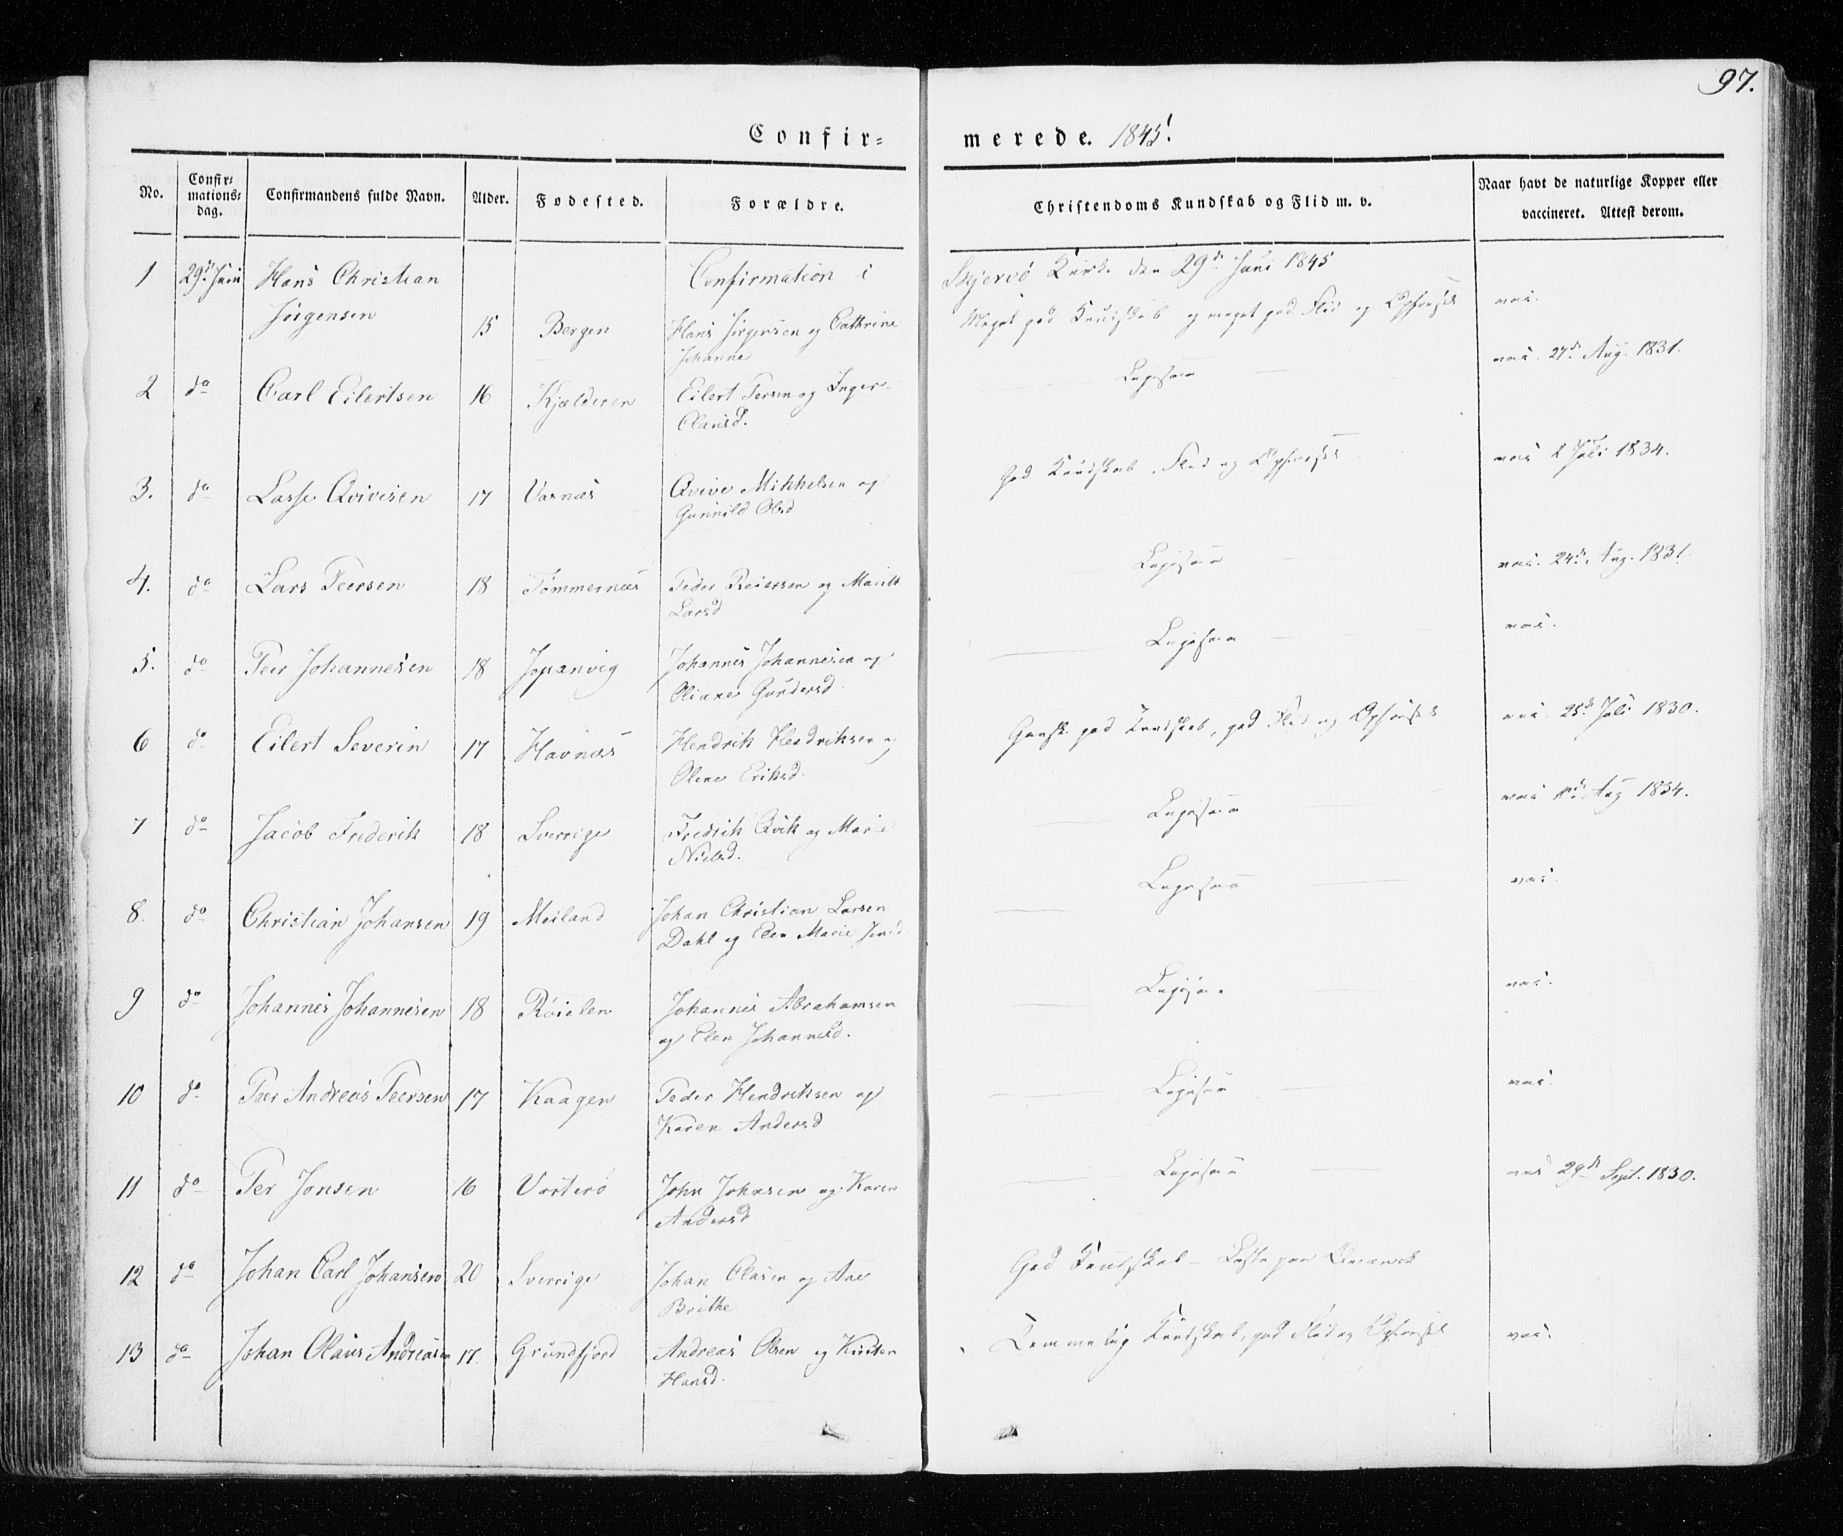 97.
Confir=
merede. 1845.
No.
Confir=
mations=
dag.
Confirmandens fulde Navn.
Alder.
Fødested.
Forældre.
Christendoms Kundskab og Flid m. v.
Naar havt de naturlige Kopper eller
vaccineret. Attest derom.
Confirmation i Skjervø Kirke den 29de Juni 1845
1 29de Juni Hans Christian
Jørgensen 15 Bergen Hans Jørgensen og Cathrine Meget god Kundskab og meget god Flid og Opførsel vac.
Johanne
2 do Carl Eilertsen 16 Kjelderen Eilert Persen og Inger Ligesaa vac. 27de Aug. 1831.
Olausd.
3. do Lasse Avivisen 17 Vasnæs Avive Mikkelsen og God Kundskab, Flid og Opførsel vac. 2 Juli 1834.
Gunnild Olsd
4. do Lars Peersen 18 Tømmernæs Peder Reiersen og Maritt Ligesaa vac. 24de Aug. 1831.
Larsd
5. do Peer Johannesen 18 Johannes Johannesen og Ligesaa vac.
Oliane Gundersd.
6 do Eilert Severin 17 Havnæs Hendrik Hendriksen og Gansk god Kundskab, god Flid og Opførsel vac. 25de Juli 1830.
Olene Eriksd.
7 do Jacob Frederik 18 Sverrige Fredrik Qvik og Marie Ligesaa vac. Aug 1834.
Nielsd.
8. do Christian Johansen 19 Meiland Johan Christian Larsen Ligesaa vac.
Dahl og Elen Marie
9 do Johannes Johannesen 18 Røielen Johannes Abrahamsen Ligesaa vac.
og Elen Johannesd.
10 do Peer Andreas Peersen 17 Kaagen Peder Hendriksen og Ligesaa vac.
Karen Andersd
11 do Per Jonsen 16 Vorterø John Johnsen og Karen Ligesaa vac 29de Sept. 1830.
Andersd
12 do Johan Carl Johansen 20 Sverrige Johan Olasen og Ane God Kundskab
Brithe
13 do Johan Olaus Andreasen 17. Grundfjord Andreas Olsen og Kirsten Temmelig Kundskab, god Flid og Opførsel vac.
Hansd.